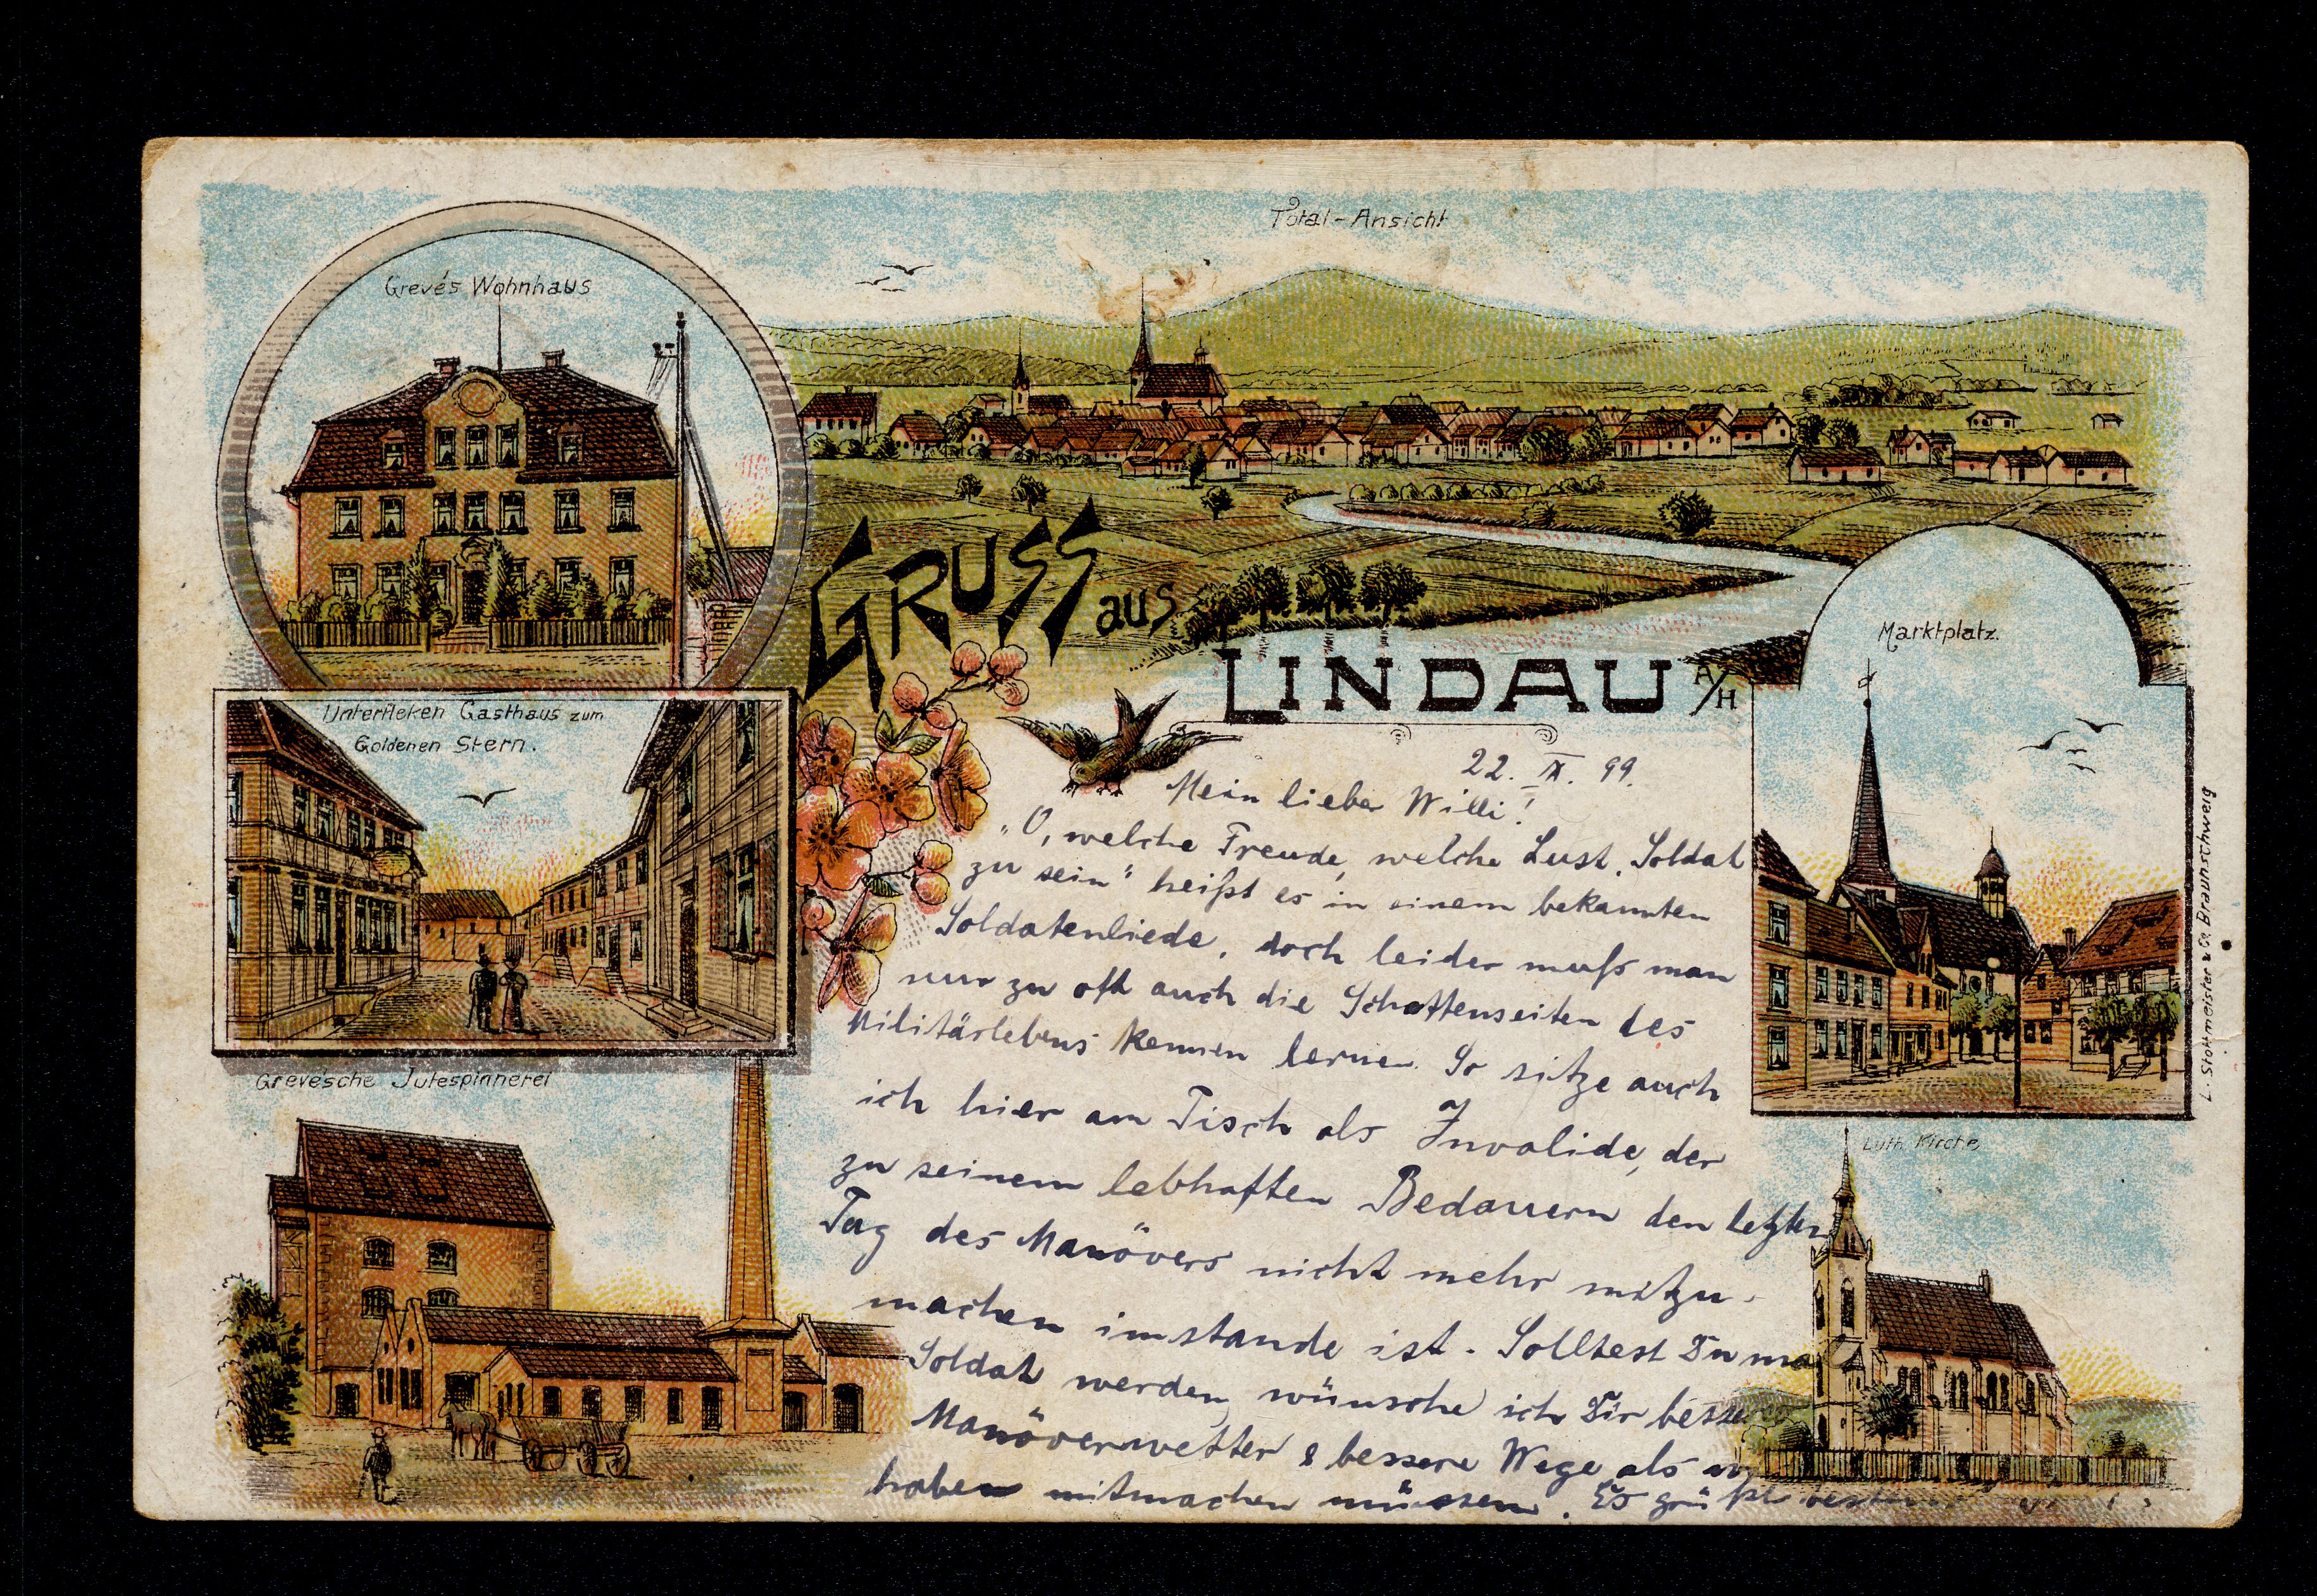 Total-Ansicht
Greve's Wohnhaus
GRUSS aus
LINDAU A/H
Marktplatz.
Unterfleken Gasthaus zum
Goldenen Stern.
Greve'sche Jutespinnerei
Luth. Kirche
L. Stottmeister & Co. Braunschweig
22. IX. 99.
Mein lieber Willi!
„O, welche Freude, welche Lust, Soldat
zu sein" heißt es in einem bekannten
Soldatenliede, doch leider muß man
nur zu oft auch die Schattenseiten des
Militärlebens kennen lernen. So sitze auch
ich hier am Tisch als Invalide, der
zu seinem lebhaften Bedauern den letzten
Tag des Manövers nicht mehr mitzu-
machen imstande ist. Solltest Du
Soldat werden, wünsche ich Dir
Manöverwetter & bessere Wege als
haben mitmachen müssen. Es grüßt